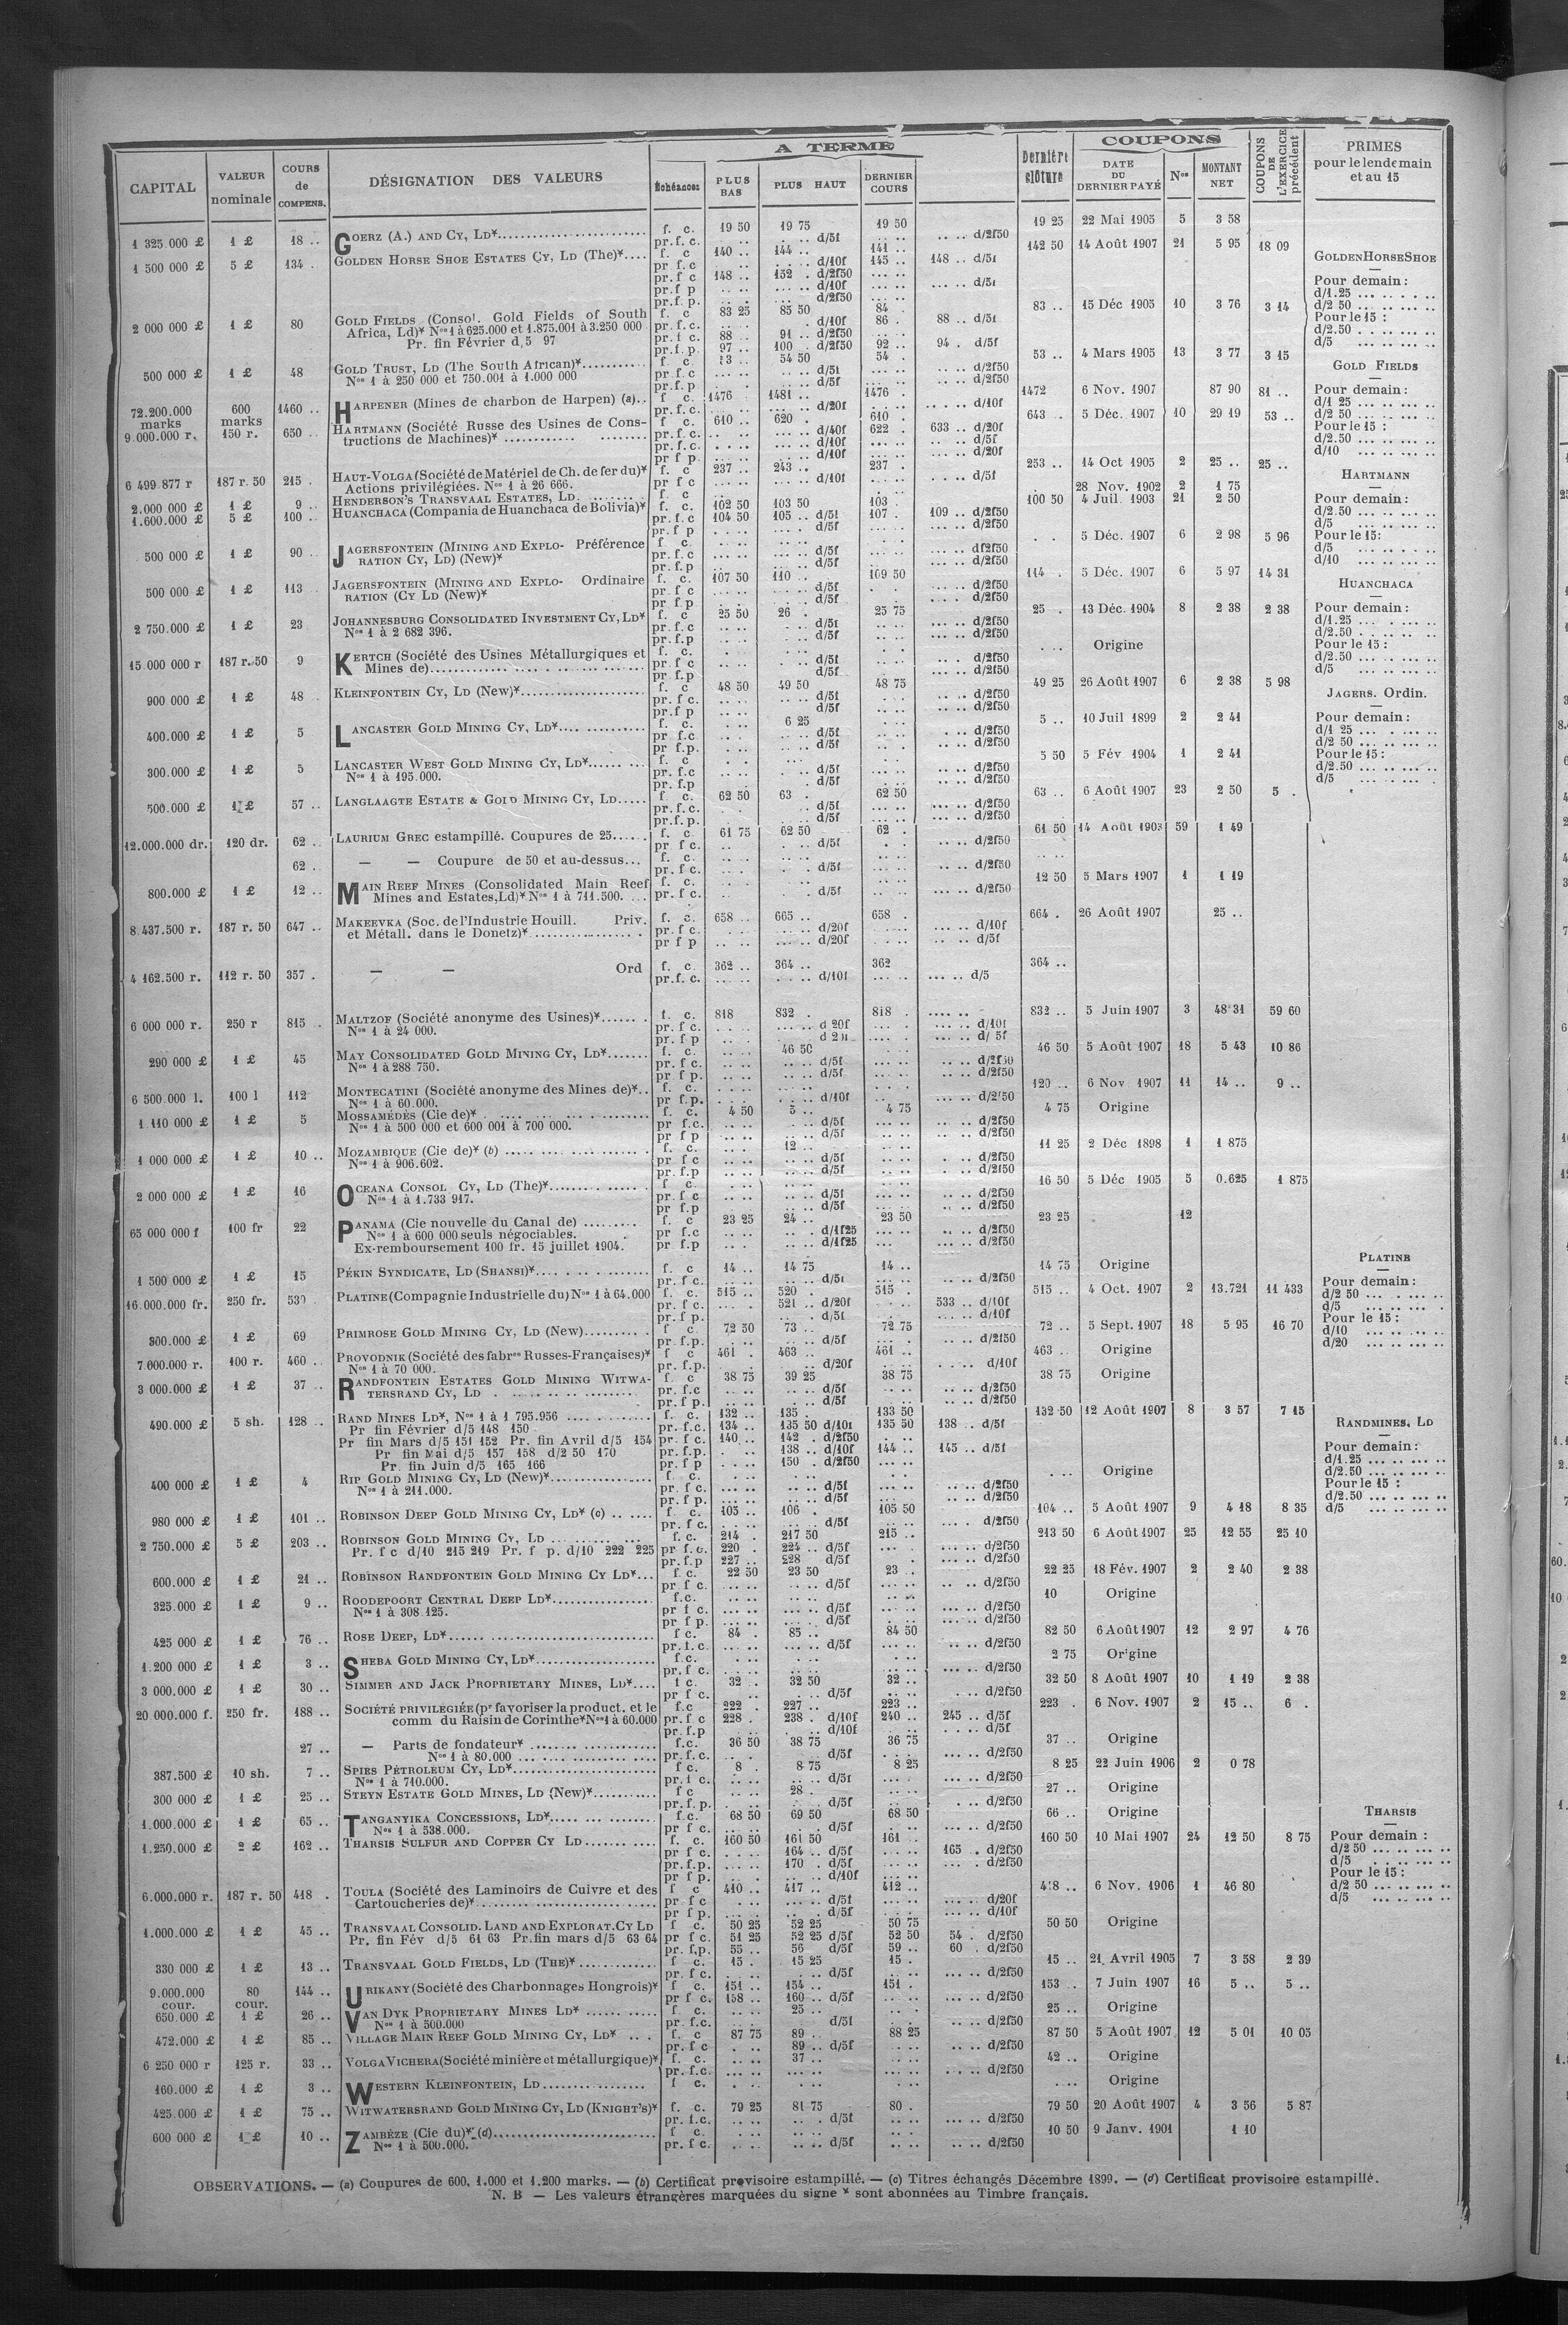 A TERME
COUPONS
CAPITAL | VALEUR nominale | COURS de COMPENS. | DÉSIGNATION DES VALEURS | Échéances | PLUS BAS | PLUS HAUT | DERNIER COURS | Dernière clôture | DATE DU DERNIER PAYÉ | Nos | MONTANT NET | COUPONS DE L'EXERCICE précédent | PRIMES pour le lendemain et au 15
1 325.000 £ | 1 £ | 18 .. | GOERZ (A.) AND CY, LD* | f. c. | 19 50 | 19 75 | 19 50 | 19 25 | 22 Mai 1905 | 5 | 3 58
pr. f. c. | d/5f | d/2f50
1 500 000 £ | 5 £ | 134 . | GOLDEN HORSE SHOE ESTATES CY, LD (The)* | f. c | 140 .. | 144 .. | 141 .. | 142 50 | 14 Août 1907 | 21 | 5 95 | 18 09
pr f. c | d/10f | 145 .. | 148 .. d/5f
pr f c | 148 .. | 152 . d/2f50
pr. f p | d/10f | d/5f
pr. f. p. | d/2f50
2 000 000 £ | 1 £ | 80 | GOLD FIELDS (Consol. Gold Fields of South | f. c | 83 25 | 85 50 | 84 . | 83 .. | 15 Déc 1905 | 10 | 3 76 | 3 14
Africa, Ld)* Nos 1 à 625.000 et 1.875.001 à 3.250 000 | pr. f. c. | d/10f | 86 . | 88 .. d/5f
Pr. fin Février d 5 97 | pr. f c. | 88 .. | 91 .. d/2f50
pr. f. p. | 97 .. | 100 . d/2f50 | 92 .. | 94 . d/5f
500 000 £ | 1 £ | 48 | GOLD TRUST, LD (The South African)* | f c | 54 50 | 54 . | 53 .. | 4 Mars 1905 | 13 | 3 77 | 3 15
Nos 1 à 250 000 et 750.001 à 1.000 000 | pr. f c | d/5f | d/2f50
pr. f. p | d/5f | d/2f50
72.200.000 marks | 600 marks | 1460 .. | HARPENER (Mines de charbon de Harpen) (a).. | f c. | 1476 | 1481 .. | 1476 . | 1472 | 6 Nov. 1907 | 87 90 | 81 ..
pr. f. c. | d/20f | d/10f
9.000.000 r. | 150 r. | 650 .. | HARTMANN (Société Russe des Usines de Cons- | f c. | 610 .. | 620 . | 610 . | 643 .. | 5 Déc. 1907 | 10 | 29 19 | 53 ..
tructions de Machines)* | pr. f. c. | d/40f | 622 . | 633 .. d/20f
pr. f. c. | d/10f | d/5f
pr f p. | d/10f | d/20f
6 499 877 r | 187 r. 50 | 215 . | HAUT-VOLGA (Société de Matériel de Ch. de fer du)* | f. c | 237 .. | 243 .. | 237 . | 253 .. | 14 Oct 1905 | 2 | 25 .. | 25 ..
Actions privilégiées. Nos 1 à 26 666. | pr f c | d/10f | d/5f
2.000 000 £ | 1 £ | 9 .. | HENDERSON'S TRANSVAAL ESTATES, LD. | f. c | 28 Nov. 1902 | 2 | 1 75
1.600.000 £ | 5 £ | 100 .. | HUANCHACA (Compania de Huanchaca de Bolivia)* | f. c. | 102 50 | 103 50 | 103 . | 100 50 | 4 Juil. 1903 | 21 | 2 50
pr. f. c | 104 50 | 105 .. d/5f | 107 . | 109 .. d/2f50
pr. f p | d/5f | d/2f50
500 000 £ | 1 £ | 90 | JAGERSFONTEIN (MINING AND EXPLO- Préférence | f c. | 5 Déc. 1907 | 6 | 2 98 | 5 96
RATION CY, LD) (New)* | pr. f. c | d/5f | d/2f50
pr. f. p | d/5f | d/2f50
500 000 £ | 1 £ | 113 | JAGERSFONTEIN (MINING AND EXPLO- Ordinaire | f. c. | 107 50 | 110 .. | 109 50 | 114 . | 5 Déc. 1907 | 6 | 5 97 | 14 31
RATION (CY LD (New)* | pr. f c | d/5f | d/2f50
pr f p | d/5f | d/2f50
2 750.000 £ | 1 £ | 23 | JOHANNESBURG CONSOLIDATED INVESTMENT CY, LD* | f. c | 25 50 | 26 . | 25 75 | 25 . | 13 Déc. 1904 | 8 | 2 38 | 2 38
Nos 1 à 2 682 396. | pr. f. c | d/5f | d/2f50
pr. f. p | d/5f | d/2f50
15 000 000 r | 187 r. 50 | 9 | KERTCH (Société des Usines Métallurgiques et | f. c. | Origine
Mines de) | pr f c | d/5f | d/2f50
pr. f. p | d/5f | d/2f50
900 000 £ | 1 £ | 48 . | KLEINFONTEIN CY, LD (New)* | f. c | 48 50 | 49 50 | 48 75 | 49 25 | 26 Août 1907 | 6 | 2 38 | 5 98
pr. f c. | d/5f | d/2f50
pr. f p | d/5f | d/2f50
400.000 £ | 1 £ | 5 | LANCASTER GOLD MINING CY, LD* | f c. | 6 25 | 5 .. | 10 Juil 1899 | 2 | 2 41
pr. f. c | d/5f | d/2f50
pr. f. p. | d/5f | d/2f50
300.000 £ | 1 £ | 5 | LANCASTER WEST GOLD MINING CY, LD* | f. c | 5 50 | 5 Fév 1904 | 1 | 2 41
Nos 1 à 195.000. | pr. f. c | d/5f | d/2f50
pr. f. p | d/5f | d/2f50
500.000 £ | 1 £ | 57 .. | LANGLAAGTE ESTATE & GOLD MINING CY, LD | f c. | 62 50 | 63 . | 62 50 | 63 .. | 6 Août 1907 | 23 | 2 50 | 5 .
pr. f. c. | d/5f | d/2f50
pr. f. p. | d/5f | d/2f50
12.000.000 dr. | 120 dr. | 62 .. | LAURIUM GREC estampillé. Coupures de 25 | f. c. | 61 75 | 62 50 | 62 . | 61 50 | 14 Août 1903 | 59 | 1 49
pr f c. | d/5f | d/2f50
62 .. | — — Coupure de 50 et au-dessus... | f. c.
pr. f c. | d/5f | d/2f50
800.000 £ | 1 £ | 12 .. | MAIN REEF MINES (Consolidated Main Reef | f. c. | 12 50 | 5 Mars 1907 | 1 | 1 19
Mines and Estates, Ld)* Nos 1 à 711.500. | pr. f c. | d/5f | d/2f50
8.437.500 r. | 187 r. 50 | 647 .. | MAKEEVKA (Soc. de l'Industrie Houill. Priv. | f. c. | 658 .. | 665 .. | 658 . | 664 . | 26 Août 1907 | 25 ..
et Métall. dans le Donetz)* | pr. f c. | d/20f | d/10f
pr f p | d/20f | d/5f
4 162.500 r. | 112 r. 50 | 357 . | — — Ord | f. c. | 362 .. | 364 .. | 362 | 364 ..
pr. f. c. | d/10f | d/5
6 000 000 r. | 250 r | 815 . | MALTZOF (Société anonyme des Usines)* | f. c. | 818 | 832 . | 818 . | 832 .. | 5 Juin 1907 | 3 | 48 31 | 59 60
Nos 1 à 24 000. | pr. f c. | d 20f | d/10f
pr. f p | d/ 5f
290 000 £ | 1 £ | 45 | MAY CONSOLIDATED GOLD MINING CY, LD* | f. c. | 46 50 | 46 50 | 5 Août 1907 | 18 | 5 43 | 10 86
Nos 1 à 288 750. | pr. f c. | d/5f | d/2f50
pr f p. | d/5f | d/2f50
6 500.000 l. | 100 l | 112 | MONTECATINI (Société anonyme des Mines de)* | f. c. | 120 .. | 6 Nov 1907 | 11 | 14 .. | 9 ..
Nos 1 à 60.000. | pr f. p. | d/10f | d/2f50
1 110 000 £ | 1 £ | 5 | MOSSAMÉDÈS (Cie de)* | f. c. | 4 50 | 5 .. | 4 75 | 4 75 | Origine
Nos 1 à 500 000 et 600 001 à 700 000. | pr f.c. | d/5f | d/2f50
pr f p | d/5f | d/2f50
1 000 000 £ | 1 £ | 10 .. | MOZAMBIQUE (Cie de)* (b) | f. c. | 12 .. | 11 25 | 2 Déc 1898 | 1 | 1 875
Nos 1 à 906.602. | pr f c | d/5f | d/2f50
pr. f.p | d/5f | d/2f50
2 000 000 £ | 1 £ | 16 | OCEANA CONSOL CY, LD (The)* | f c. | 16 50 | 5 Déc 1905 | 5 | 0.625 | 1 875
Nos 1 à 1.733 917. | pr f c | d/5f | d/2f50
pr f.p | d/5f | d/2f50
65 000 000 f | 100 fr | 22 | PANAMA (Cie nouvelle du Canal de) | f. c | 23 25 | 24 .. | 23 50 | 23 25 | 12
Nos 1 à 600 000 seuls négociables. | pr f.c | d/1f25 | d/2f50
Ex-remboursement 100 fr. 15 juillet 1904. | pr f.p | d/1f25 | d/2f50
1 500 000 £ | 1 £ | 15 | PÉKIN SYNDICATE, LD (SHANSI)* | f. c | 14 .. | 14 75 | 14 .. | 14 75 | Origine
pr f c. | d/5f | d/2f50
16.000.000 fr. | 250 fr. | 530 | PLATINE (Compagnie Industrielle du) Nos 1 à 64.000 | f. c. | 515 .. | 520 . | 515 . | 515 .. | 4 Oct. 1907 | 2 | 13.721 | 11 433
pr f c. | 521 .. d/20f | 533 .. d/10f
pr. f p. | d/5f | d/10f
300.000 £ | 1 £ | 69 | PRIMROSE GOLD MINING CY, LD (New) | f c. | 72 50 | 73 .. | 72 75 | 72 .. | 5 Sept. 1907 | 18 | 5 95 | 16 70
pr. f.p. | d/5f | d/2f50
7.000.000 r. | 100 r. | 460 .. | PROVODNIK (Société des fabres Russes-Françaises)* | f c | 461 . | 463 .. | 461 .. | 463 .. | Origine
Nos 1 à 70 000. | pr. f.p. | d/20f | d/10f
3 000.000 £ | 1 £ | 37 .. | RANDFONTEIN ESTATES GOLD MINING WITWA- | f c | 38 75 | 39 25 | 38 75 | 38 75 | Origine
TERSRAND CY, LD | pr. f.c | d/5f | d/2f50
pr. f p. | d/5f | d/2f50
490.000 £ | 5 sh. | 128 .. | RAND MINES LD*, Nos 1 à 1 795.956 | f. c. | 132 .. | 135 . | 133 50 | 132 50 | 12 Août 1907 | 8 | 3 57 | 7 15
Pr fin Février d/5 148 150 | pr. f.c. | 134 .. | 135 50 d/10f | 135 50 | 138 .. d/5f
Pr fin Mars d/5 151 152 Pr. fin Avril d/5 154 | pr. f c. | 140 .. | 142 . d/2f50
Pr fin Mai d/5 157 158 d/2 50 170 | pr. f.p. | 138 .. d/10f | 144 .. | 145 .. d/5f
Pr. fin Juin d/5 165 166 | pr. f p | 150 . d/2f50
400 000 £ | 1 £ | 4 | RIP GOLD MINING CY, LD (New)* | f c. | Origine
Nos 1 à 211.000. | pr. f c. | d/5f | d/2f50
pr. f p. | d/5f | d/2f50
980 000 £ | 1 £ | 101 .. | ROBINSON DEEP GOLD MINING CY, LD* (c) | f c. | 105 .. | 106 . | 105 50 | 104 .. | 5 Août 1907 | 9 | 4 18 | 8 35
pr. f c. | d/5f | d/2f50
2 750.000 £ | 5 £ | 203 .. | ROBINSON GOLD MINING CY, LD | f. c. | 214 . | 217 50 | 215 .. | 213 50 | 6 Août 1907 | 25 | 12 55 | 25 10
Pr. f c d/10 215 219 Pr. f p. d/10 222 225 | pr f.c. | 220 . | 224 .. d/5f | d/2f50
pr. f.p | 227 .. | 228 d/5f | d/2f50
600.000 £ | 1 £ | 21 .. | ROBINSON RANDFONTEIN GOLD MINING CY LD* | f. c. | 22 50 | 23 50 | 23 .. | 22 25 | 18 Fév. 1907 | 2 | 2 40 | 2 38
pr f c. | d/5f | d/2f50
325.000 £ | 1 £ | 9 .. | ROODEPOORT CENTRAL DEEP LD* | f.c. | 10 | Origine
Nos 1 à 308.125. | pr f c. | d/5f | d/2f50
pr f p. | d/5f | d/2f50
425 000 £ | 1 £ | 76 .. | ROSE DEEP, LD* | f c. | 84 . | 85 .. | 84 50 | 82 50 | 6 Août 1907 | 12 | 2 97 | 4 76
pr. f. c. | d/5f | d/2f50
1.200 000 £ | 1 £ | 3 .. | SHEBA GOLD MINING CY, LD* | f.c. | 2 75 | Origine
pr. f c. | d/2f50
3 000.000 £ | 1 £ | 30 .. | SIMMER AND JACK PROPRIETARY MINES, LD* | f c. | 32 . | 32 50 | 32 .. | 32 50 | 8 Août 1907 | 10 | 1 19 | 2 38
pr f c. | d/5f | d/2f50
20 000.000 f. | 250 fr. | 188 .. | SOCIÉTÉ PRIVILÉGIÉE (pr favoriser la product. et le | f.c | 222 . | 227 .. | 223 .. | 223 . | 6 Nov. 1907 | 2 | 15 .. | 6 .
comm du Raisin de Corinthe* Nos 1 à 60.000 | pr. f c | 228 . | 238 . d/10f | 240 .. | 245 .. d/5f
pr. f.p | d/10f | d/5f
27 .. | — Parts de fondateur* | f.c. | 36 50 | 38 75 | 36 75 | 37 .. | Origine
Nos 1 à 80.000 | pr. f. c. | d/5f | d/2f50
387.500 £ | 10 sh. | 7 .. | SPIES PÉTROLEUM CY, LD* | f c. | 8 . | 8 75 | 8 25 | 8 25 | 22 Juin 1906 | 2 | 0 78
Nos 1 à 710.000. | pr. f c. | d/5f | d/2f50
300 000 £ | 1 £ | 25 .. | STEYN ESTATE GOLD MINES, LD (New)* | f c | 28 . | 27 .. | Origine
pr. f. p. | d/5f | d/2f50
1.000.000 £ | 1 £ | 65 .. | TANGANYIKA CONCESSIONS, LD* | f.c. | 68 50 | 69 50 | 68 50 | 66 .. | Origine
Nos 1 à 538.000. | pr f c. | d/5f | d/2f50
1.250.000 £ | 2 £ | 162 .. | THARSIS SULFUR AND COPPER CY LD | f. c. | 160 50 | 161 50 | 161 .. | 160 50 | 10 Mai 1907 | 24 | 12 50 | 8 75
pr f c. | 164 .. d/5f | 165 . d/2f50
pr. f.p. | 170 . d/5f | d/2f50
pr f p. | d/10f
6.000.000 r. | 187 r. 50 | 418 . | TOULA (Société des Laminoirs de Cuivre et des | f c | 410 .. | 417 .. | 412 .. | 418 .. | 6 Nov. 1906 | 1 | 46 80
Cartoucheries de)* | pr f c | d/5f | d/20f
pr f p. | d/5f | d/10f
1.000.000 £ | 1 £ | 45 .. | TRANSVAAL CONSOLID. LAND AND EXPLORAT. CY LD | f c. | 50 25 | 52 25 | 50 75 | 50 50 | Origine
Pr. fin Fév d/5 61 63 Pr. fin mars d/5 63 64 | pr f c. | 51 25 | 52 25 d/5f | 52 50 | 54 . d/2f50
pr. f.p. | 55 .. | 56 d/5f | 59 .. | 60 . d/2f50
330 000 £ | 1 £ | 13 .. | TRANSVAAL GOLD FIELDS, LD (THE)* | f c. | 15 . | 15 25 | 15 . | 15 .. | 21 Avril 1905 | 7 | 3 58 | 2 39
pr. f c. | d/5f | d/2f50
9.000.000 cour. | 80 cour. | 144 .. | URIKANY (Société des Charbonnages Hongrois)* | f c. | 151 .. | 154 .. | 151 . | 153 .. | 7 Juin 1907 | 16 | 5 .. | 5 ..
pr f c. | 158 .. | 160 .. d/5f | d/2f50
650.000 £ | 1 £ | 26 .. | VAN DYK PROPRIETARY MINES LD* | f c. | 25 .. | 25 .. | Origine
Nos 1 à 500.000 | pr. f.c. | d/5f | d/2f50
472.000 £ | 1 £ | 85 .. | VILLAGE MAIN REEF GOLD MINING CY, LD* | f. c | 87 75 | 89 .. | 88 25 | 87 50 | 5 Août 1907 | 12 | 5 01 | 10 05
pr. f c | 89 .. d/5f | d/2f50
6 250 000 r | 125 r. | 33 .. | VOLGA VICHERA (Société minière et métallurgique)* | f. c. | 37 .. | 42 .. | Origine
pr. f.c. | d/2f50
160.000 £ | 1 £ | 3 .. | WESTERN KLEINFONTEIN, LD | f c. | Origine
425.000 £ | 1 £ | 75 .. | WITWATERSRAND GOLD MINING CY, LD (KNIGHT'S)* | f. c. | 79 25 | 81 75 | 80 . | 79 50 | 20 Août 1907 | 4 | 3 56 | 5 87
pr. f.c. | d/5f | d/2f50
600 000 £ | 1 £ | 10 .. | ZAMBÈZE (Cie du)* (d) | f c. | 10 50 | 9 Janv. 1901 | 1 10
Nos 1 à 500.000. | pr. f c. | d/5f | d/2f50
GOLDEN HORSE SHOE
Pour demain:
d/1.25
d/2 50
Pour le 15 :
d/2.50
d/5
GOLD FIELDS
Pour demain:
d/1 25
d/2 50
Pour le 15 :
d/2.50
d/10
HARTMANN
Pour demain:
d/2.50
d/5
Pour le 15:
d/5
d/10
HUANCHACA
Pour demain:
d/1.25
d/2.50
Pour le 15 :
d/2.50
d/5
JAGERS. Ordin.
Pour demain:
d/1 25
d/2 50
Pour le 15 :
d/2.50
d/5
PLATINE
Pour demain:
d/2 50
d/5
Pour le 15 :
d/10
d/20
RANDMINES, LD
Pour demain:
d/1.25
d/2.50
Pour le 15 :
d/2.50
d/5
THARSIS
Pour demain :
d/2 50
d/5
Pour le 15 :
d/2 50
d/5
OBSERVATIONS. — (a) Coupures de 600, 1.000 et 1.200 marks. — (b) Certificat provisoire estampillé. — (c) Titres échangés Décembre 1899. — (d) Certificat provisoire estampillé.
N. B — Les valeurs étrangères marquées du signe * sont abonnées au Timbre français.